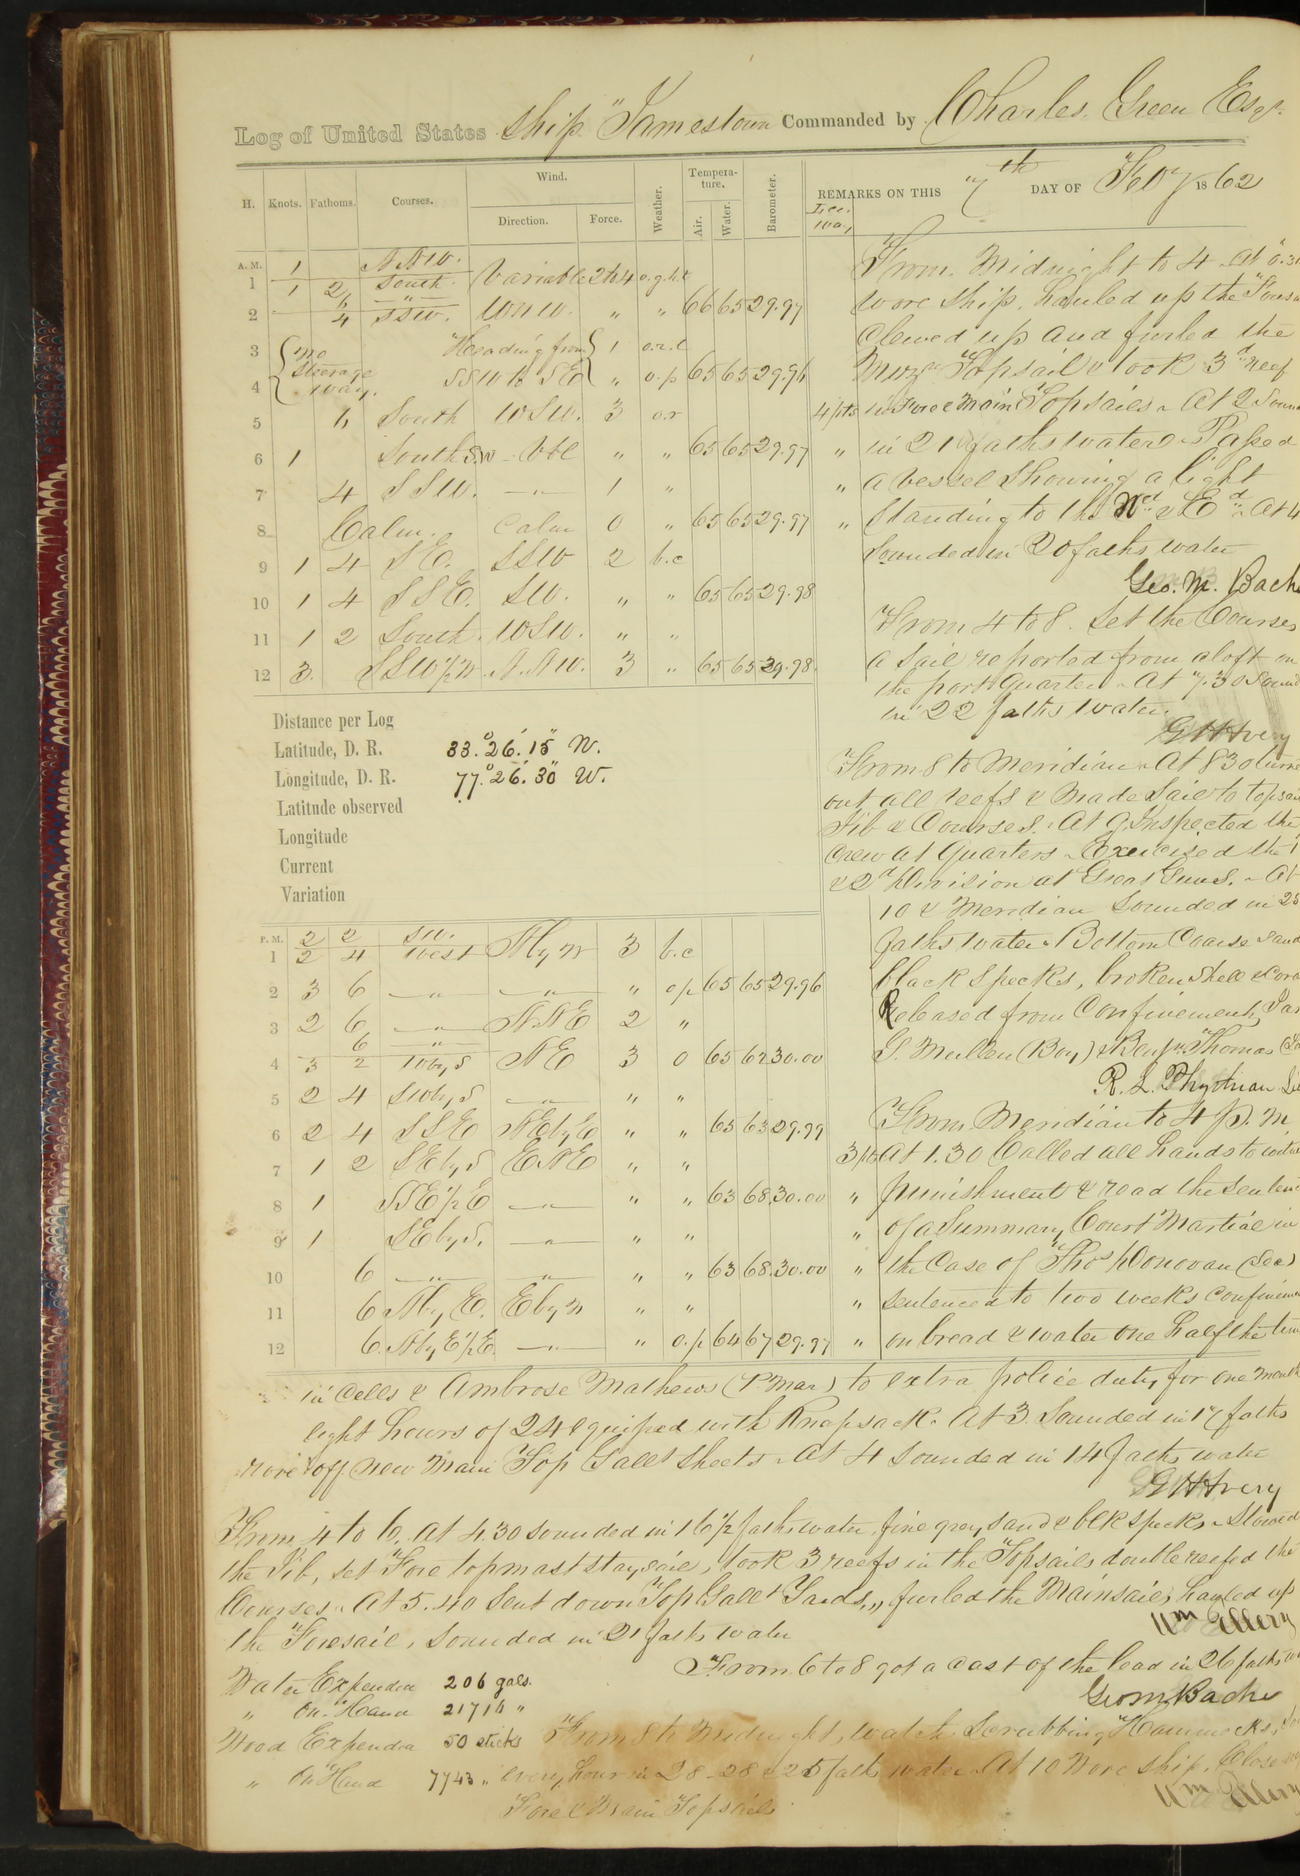 Log of United States Ship "Jamestown Commanded by Charles Green Esqr.
REMARKS ON THIS 7th DAY OF Feby 1862
H. Knots. Fathoms. Courses. Wind. Direction. Force. Weather. Temperature. Air. Water. Barometer. Lee way
A.M. 1 N.N.W.
1 1 2 South Variable 2 to 4 o.g.h.t
6 "
2 4 SSW. WNW. " " 66 65 29.97
3 no Steerage way. Heading from 1 o.r.t
4 SSW to SE " o.p 65 65 29.96
5 6 South WSW. 3 o.r 4 pts
6 1 South SW Vbl " " 65 65 29.97 "
7 4 SSW. " 1 " "
8 Calm. Calm 0 " 65 65 29.97 "
9 1 4 SE. SSW 2 b.c
10 1 4 SSE. SW. " " 65 65 29.98
11 1 2 South. WSW. " "
12 3. SSW½W. N.NW. 3 " 65 65 29.98
From Midnight to 4 At 0.30
wore ship. hauled up the
clewed up and furled the
Mizen Topsail & took 3d reef
in Fore & Main Topsails. At 2
in 21 faths water. Passed
a vessel showing a light
standing to the Nd & Ed. At 4
sounded in 20 faths water
Geo. M. Bache
From 4 to 8. Set the Courses
a sail reported from aloft on
the port Quarter. At 7.30
in 22 faths water.
G H Avery
Distance per Log
Latitude, D. R. 33.° 26.' 15" N.
Longitude, D. R. 77.° 26.' 30" W.
Latitude observed
Longitude
Current
Variation
From 8 to Meridian. At 8 30
out all reefs & Made Sail to
Jib & Courses. At 9 Inspected the
Crew at Quarters. Exercised the 1
& 2d Division at Great Guns. At
10 & Meridian Sounded in 25
faths water. Bottom Coarse sand
black specks, broken shell &
Released from Confinement,
G. Mullen (Boy) & Benjn. Thomas
R. L. Phythian
P.M. 2 2 SW.
1 2 4 West N by W 3 b.c
2 3 6 " " " o/p 65 65 29.96
3 2 6 " NNE 2 "
6 "
4 3 2 W by S NE 3 0 65 67 30.00
5 2 4 SW by S " " "
6 2 4 SSE NE by E " " 65 63 29.99
7 1 2 SE by S ENE " " 3 pts
8 1 SSE½E " " " 63 68 30.00 "
9 1 SE by S. " " " "
10 6 " " " " 63 68 30.00 "
11 6 N by E. E by N " " "
12 6. N by E½E. " " o.p 64 67 29.97 "
From Meridian to 4 P. M
At 1.30 Called all hands to
punishment & read the
of a Summary Court Martial in
the Case of Thos Donovan (Sea)
sentenced to two weeks
on bread & water one half the
in Cells & Ambrose Mathews (P. Mar) to extra police duty for one month
eight hours of 24 equiped with Knapsack. At 3. Sounded in 17 faths
rove off new Main Top Gallt Sheets. At 4 Sounded in 14 faths water
G H Avery
From 4 to 6. At 4.30 sounded in 16½ faths water, fine grey sand & blk specks. Stowed
the Jib, set Fore topmast staysail, took 3 reefs in the Topsails, double reefed the
Courses. At 5.40 Sent down Top Gallt Yards, furled the Mainsail, hauled up
the Foresail, Sounded in 21 faths water
Wm Ellery
From 6 to 8 got a cast of the lead in 26 faths
Geo M Bache
Water Expended 206 gals.
" On Hand 21716 "
Wood Expended 50 sticks
" On Hand 7743 "
From 8 to Midnight, watch Scrubbing Hammocks,
every hour in 28 - 28 & 25 faths water. At 10 Wore ship. Close
Fore & Main Topsails
Wm Ellery